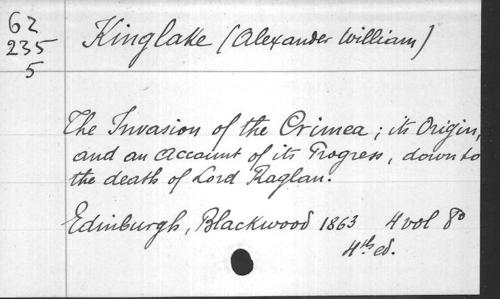 62
235
5
Kinglake (Alexander William)
The Invasion of the Crimea; its Origin,
and an Account of its Progress, down to
the death of Lord Raglan.
Edinburgh, Blackwood 1863 4 vol 8º
4th ed.